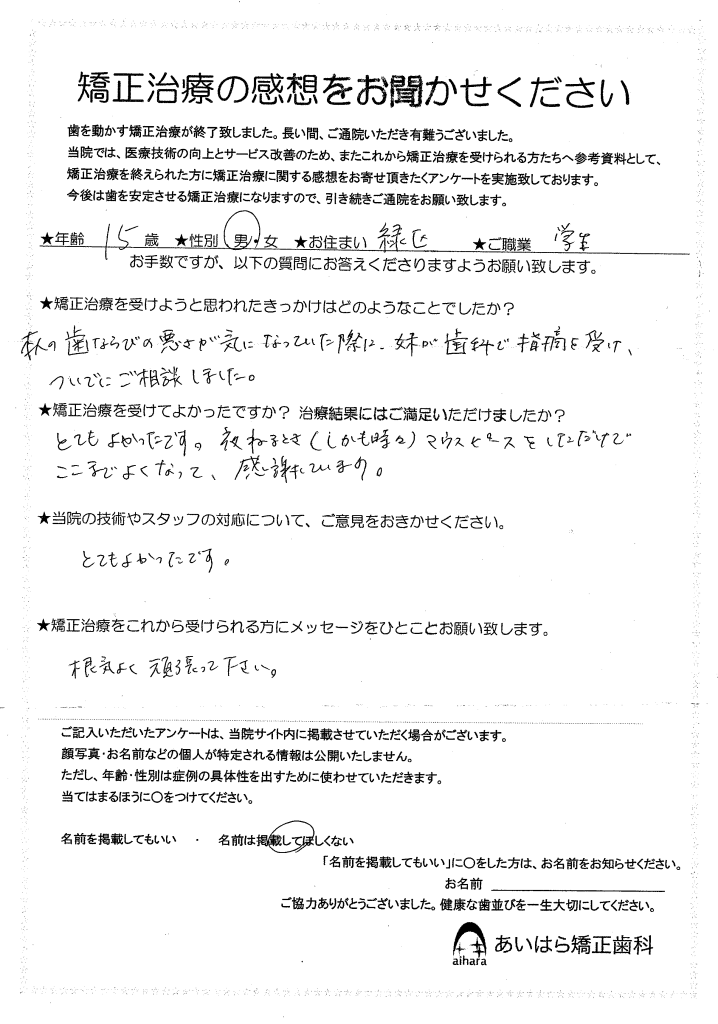 矯正治療の感想をお聞かせください
歯を動かす矯正治療が終了致しました。長い間、ご通院いただき有難うございました。
当院では、医療技術の向上とサービス改善のため、またこれから矯正治療を受けられる方たちへ参考資料として、
矯正治療を終えられた方に矯正治療に関する感想をお寄せ頂きたくアンケートを実施致しております。
今後は歯を安定させる矯正治療になりますので、引き続きご通院をお願い致します。
★年齢 15 歳 ★性別 男・女 ★お住まい 緑区 ★ご職業 学生
お手数ですが、以下の質問にお答えくださりますようお願い致します。
★矯正治療を受けようと思われたきっかけはどのようなことでしたか?
本人の歯ならびの悪さが気になっていた際に、妹が歯科で指摘を受け、
ついでにご相談しました。
★矯正治療を受けてよかったですか? 治療結果にはご満足いただけましたか?
とてもよかったです。夜ねるとき(しかも時々)マウスピースをしただけで
ここまでよくなって、感謝しています。
★当院の技術やスタッフの対応について、ご意見をおきかせください。
とてもよかったです。
★矯正治療をこれから受けられる方にメッセージをひとことお願い致します。
根気よく頑張って下さい。
ご記入いただいたアンケートは、当院サイト内に掲載させていただく場合がございます。
顔写真・お名前などの個人が特定される情報は公開いたしません。
ただし、年齢・性別は症例の具体性を出すために使わせていただきます。
当てはまるほうに○をつけてください。
名前を掲載してもいい ・ 名前は掲載してほしくない
「名前を掲載してもいい」に○をした方は、お名前をお知らせください。
お名前
ご協力ありがとうございました。健康な歯並びを一生大切にしてください。
aihara あいはら矯正歯科